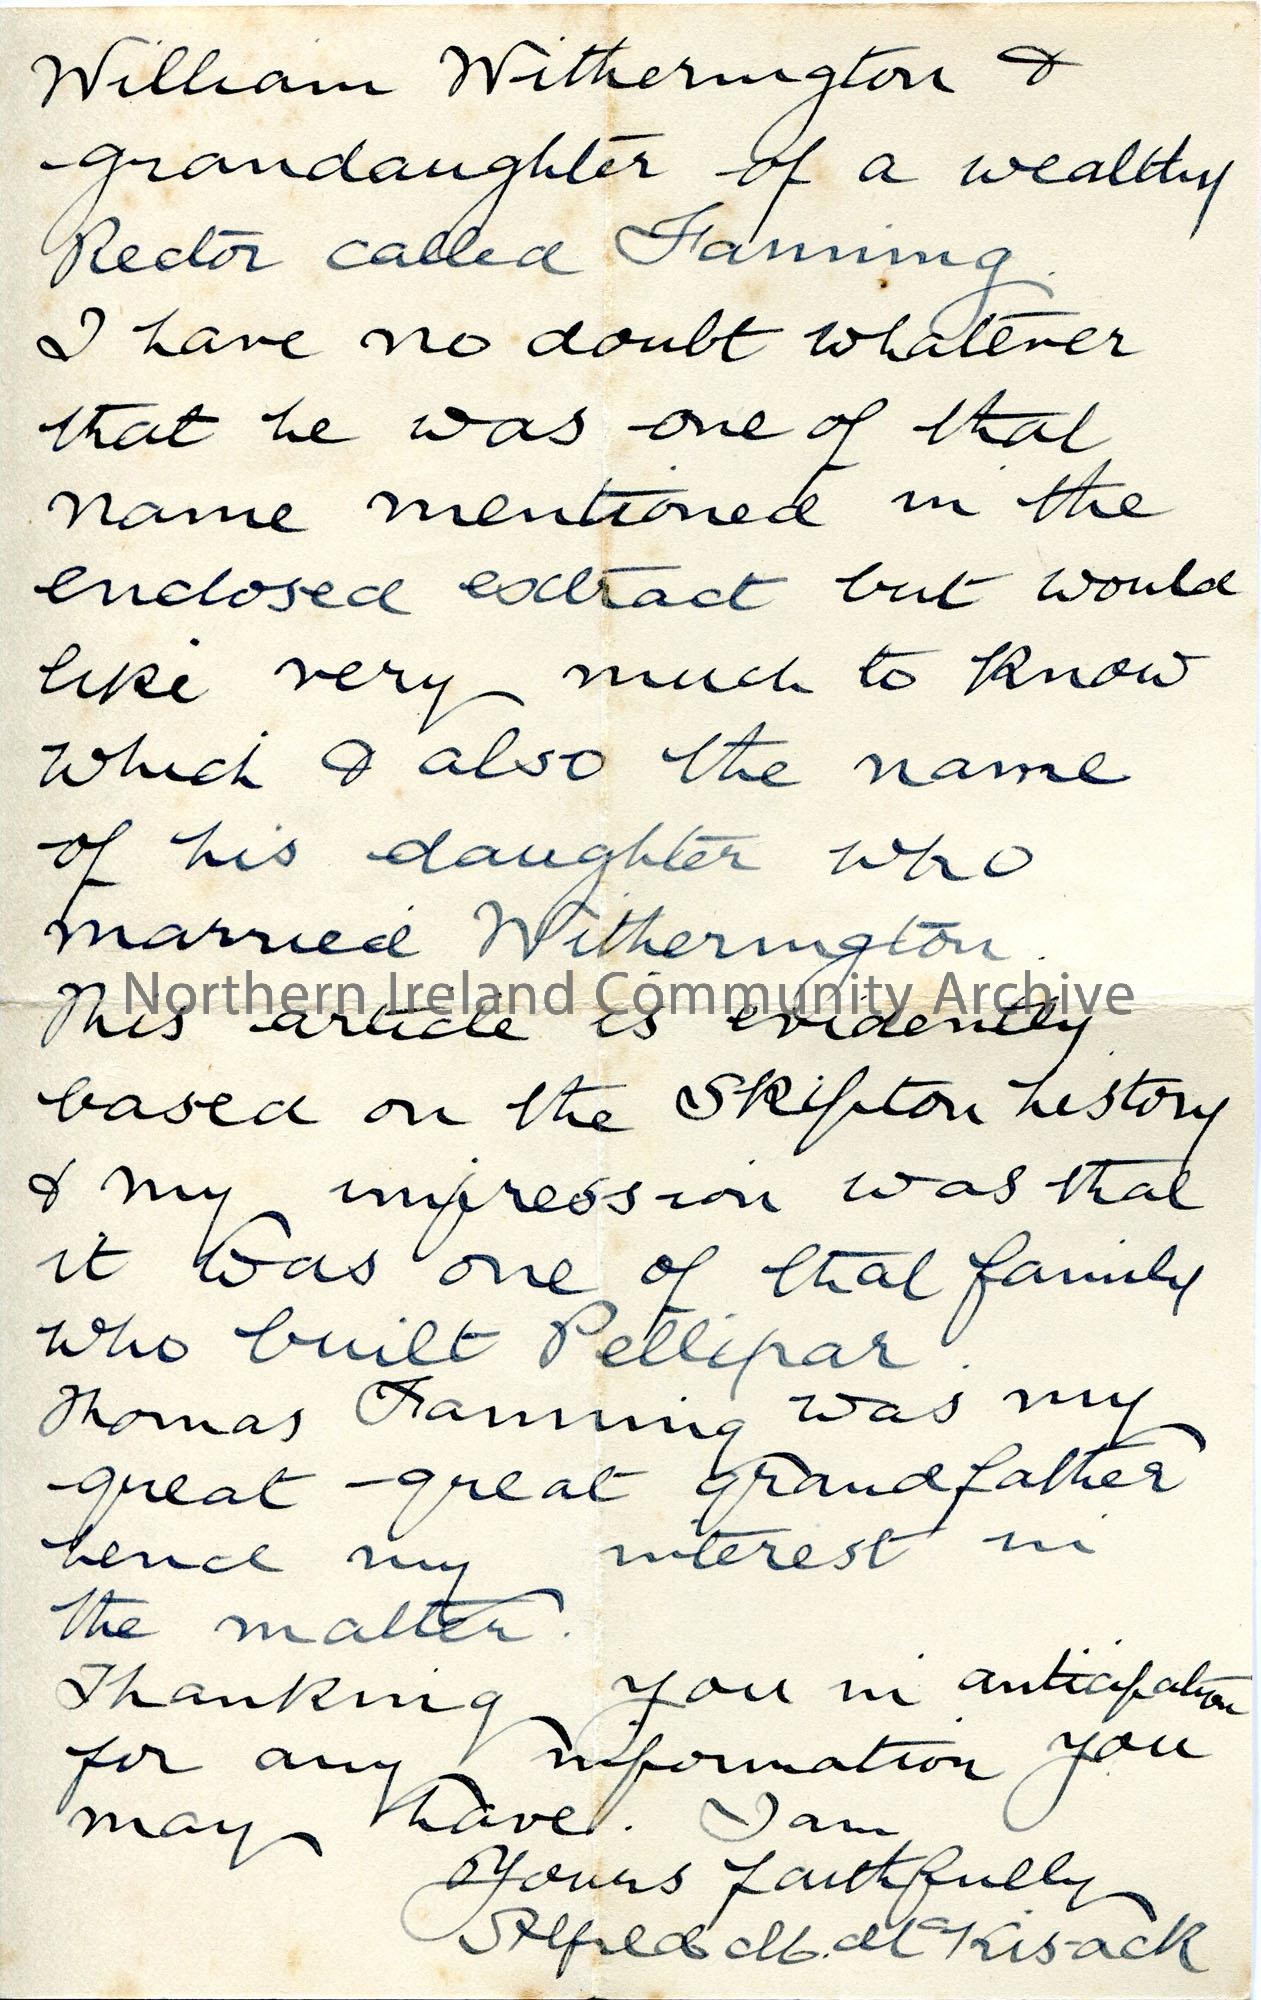 William Witherington &
grandaughter of a wealthy
Rector called Fanning.
I have no doubt whatever
that he was one of that
name mentioned in the
enclosed extract but would
like very much to know
which & also the name
of his daughter who
married Witherington.
Northern Ireland Community Archive
This article is evidently
based on the Skipton history
& my impression was that
it was one of that family
who built Pellipar.
Thomas Fanning was my
great-great grandfather
hence my interest in
the matter.
Thanking you in anticipation
for any information you
may have. I am
Yours faithfully
Alfred M. McKisack